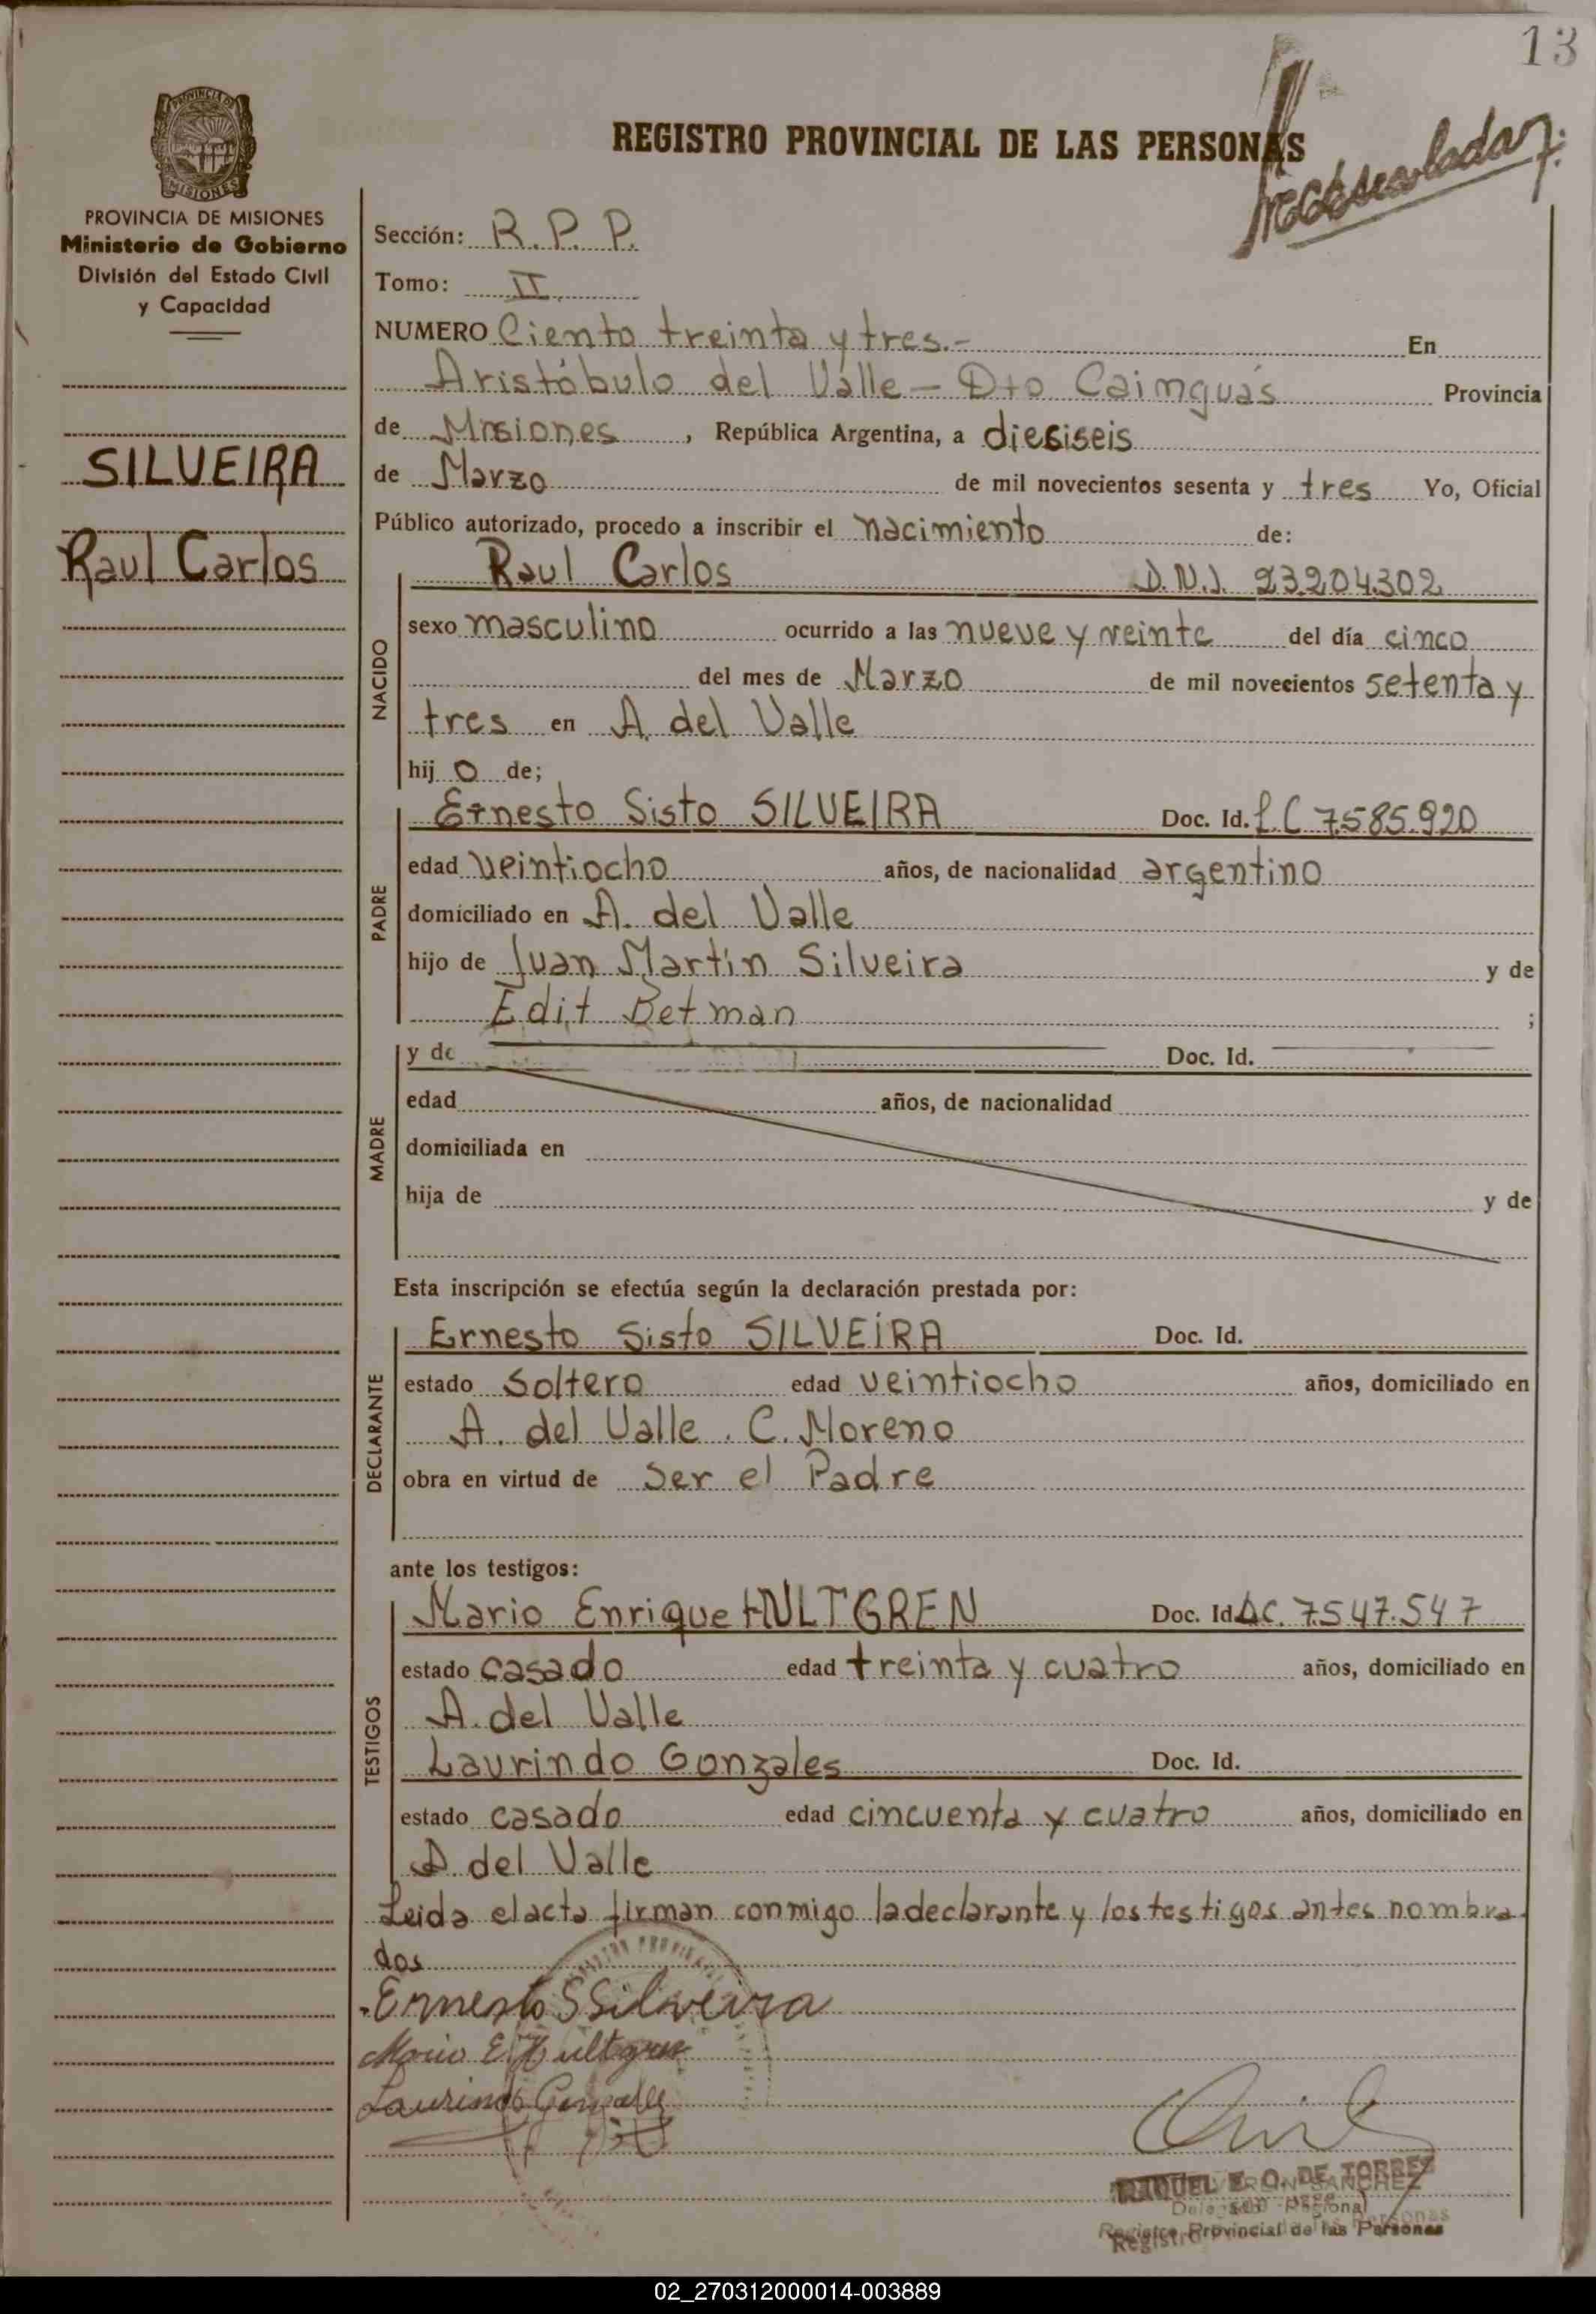 13
REGISTRO PROVINCIAL DE LAS PERSONAS
PROVINCIA DE MISIONES
PROVINCIA DE MISIONES
Ministerio de Gobierno
División del Estado Civil
y Capacidad
SILVEIRA
Raul Carlos
Sección: R. P. P.
Tomo: II
NUMERO Ciento treinta y tres.- En
Aristóbulo del Valle - Dto Cainguás Provincia
de Misiones, República Argentina, a diesiseis
de Marzo de mil novecientos sesenta y tres Yo, Oficial
Público autorizado, procedo a inscribir el nacimiento de:
NACIDO
Raul Carlos D.N.I. 23.204.302
sexo masculino ocurrido a las nueve y veinte del día cinco
del mes de Marzo de mil novecientos setenta y
tres en A. del Valle
hij o de;
PADRE
Ernesto Sisto SILVEIRA Doc. Id. L.C 7.585.920
edad veintiocho años, de nacionalidad argentino
domiciliado en A. del Valle
hijo de Juan Martín Silveira y de
Edit Betman ;
MADRE
y de Doc. Id.
edad años, de nacionalidad
domiciliada en
hija de y de
Esta inscripción se efectúa según la declaración prestada por:
DECLARANTE
Ernesto Sisto SILVEIRA Doc. Id.
estado Soltero edad veintiocho años, domiciliado en
A. del Valle. C. Moreno
obra en virtud de Ser el Padre
ante los testigos:
TESTIGOS
Mario Enrique HULTGREN Doc. Id. 7.547.547
estado casado edad treinta y cuatro años, domiciliado en
A. del Valle
Laurindo Gonzales Doc. Id.
estado casado edad cincuenta y cuatro años, domiciliado en
A del Valle
Leida el acta firman conmigo la declarante y los testigos antes nombra
dos
Ernesto S Silveira
Mario E. Hultgren
Laurindo Gonzalez
RAQUEL E. O. DE TORRES
Registro Provincial de las Personas
02_270312000014-003889